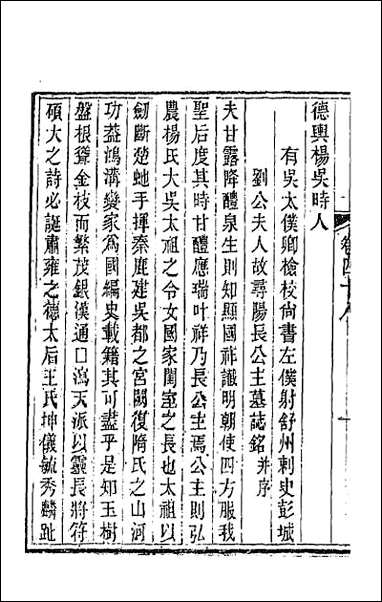 德輿楊吳時人
有吳太僕卿檢校尚書左僕射舒州刺史彭城
劉公夫人故尋陽長公主墓誌銘并序
夫甘露降醴泉生則知顯國祚識明朝使四方服我
聖后度其時甘醴應瑞叶祥乃長公主焉公主則弘
農楊氏大吳太祖之令女國家閨室之長也太祖以
劒斷楚虵手揮秦鹿建吳都之宮闕復隋氏之山河
功葢鴻溝變家為國編史載籍其可盡乎是知玉樹
盤根聳金枝而繁茂銀漢通口瀉天派以靈長將符
碩大之詩必誕肅雍之德太后王氏坤儀毓秀麟趾
卷四十八